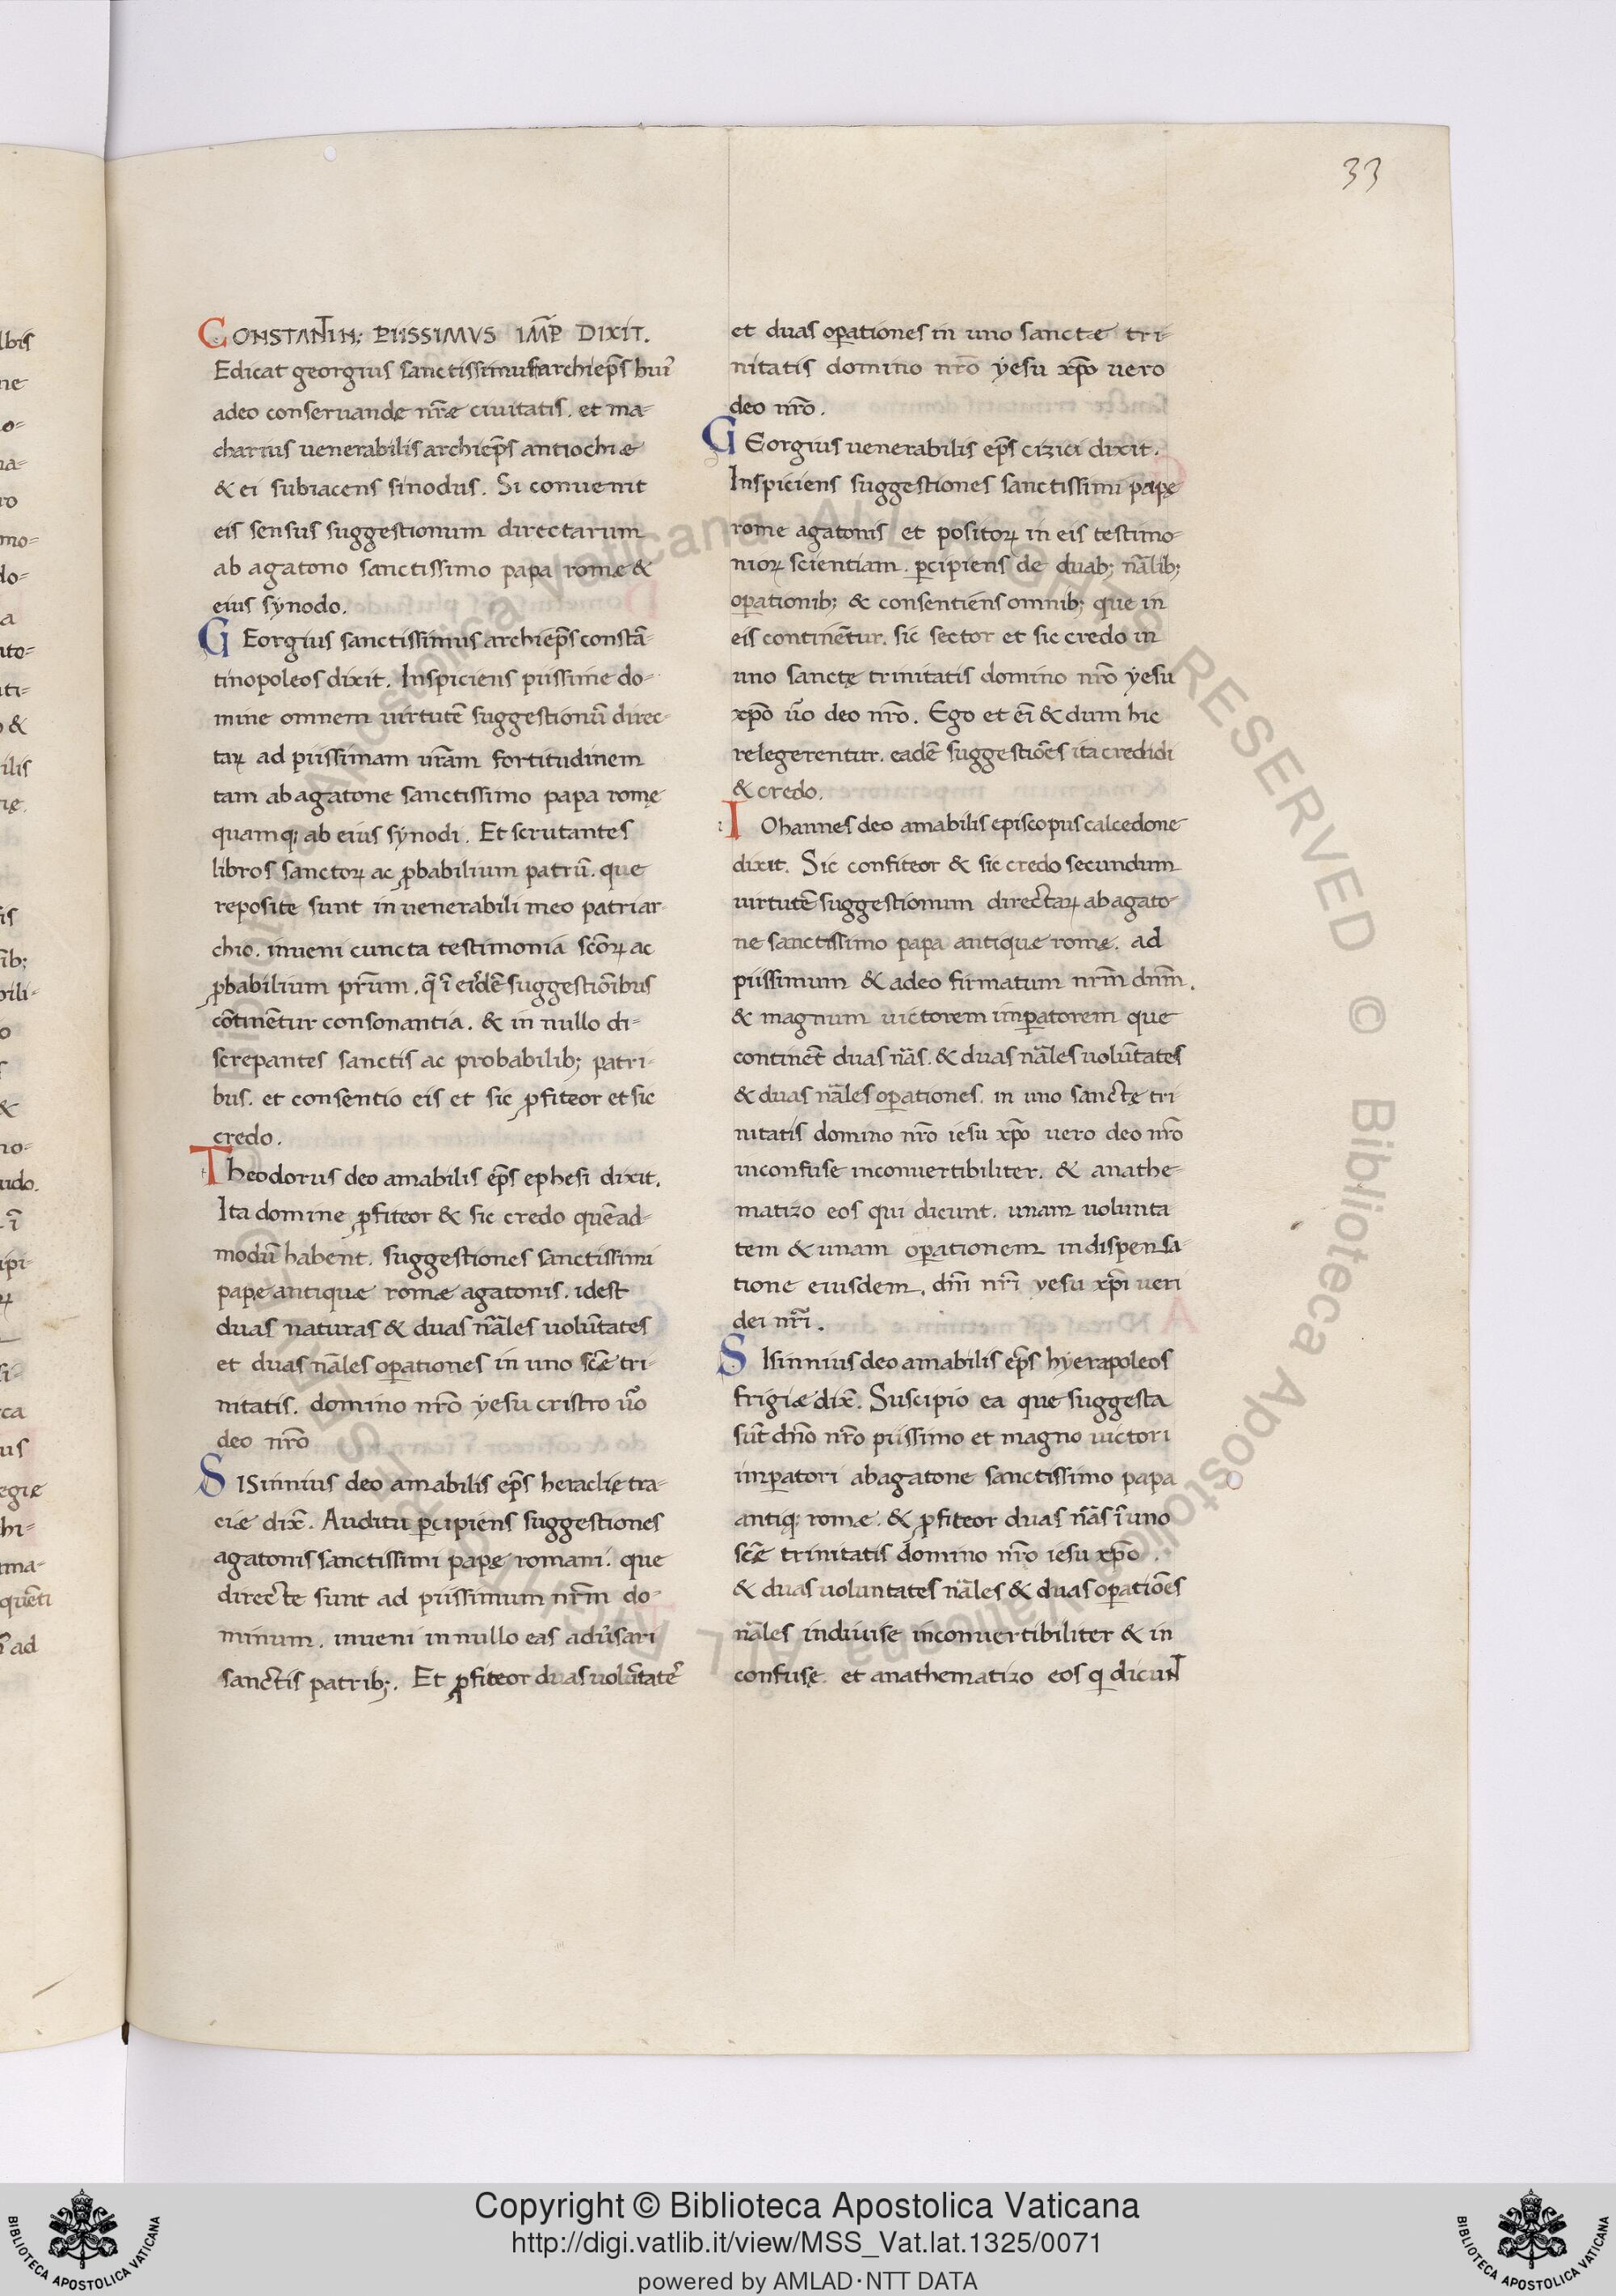 33
CONSTANTIN; PIISSIMVS IM̄P DIXIT.
Edicat georgius sanctissimus archiep̄s hui᾿
adeo conseruandę nr̄æ ciuitatis. et ma-
charius uenerabilis archiep̄s antiochiæ
& ei subiacens sinodus. Si conuenit
eis sensus suggestionum directarum
ab agatono sanctissimo papa romæ &
eius synodo.
GEorgius sanctissimus archiep̄s constā-
tinopoleos dixit. Inspiciens piissime do-
mine omnem uirtutē suggestionū direc-
taꝝ ad piissimam ur̄am fortitudinem
tam ab agatone sanctissimo papa romę
quamq; ab eius synodi. Et scrutantes
libros sanctoꝝ ac ꝓbabilium patrū. que
reposite sunt in uenerabili meo patriar
chio. inueni cuncta testimonia scōꝝ ac
ꝓbabilium pr̄um. q̄ ī eisdē suggestiōibus
cōtinētur consonantia. & in nullo di-
screpantes sanctis ac probabilib; patri-
bus. et consentio eis et sic ꝓfiteor et sic
credo.
Theodorus deo amabilis ep̄s ephesi dixit.
Ita domine ꝓfiteor & sic credo quēad-
modū habent. suggestiones sanctissimi
papę antiquæ romæ agatonis. idest
duas naturas & duas nāles uolūtates
et duas nāles oꝑationes in uno scǣ tri-
nitatis. domino nr̄o yesu cristro ūo
deo nr̄o
SISinnius deo amabilis ep̄s heraclię tra-
ciæ dix̄. Auditu ꝑcipiens suggestiones
agatonis sanctissimi papę romani. que
directe sunt ad piissimum nr̄m do-
minum. inueni in nullo eas adūsari
sanctis patrib;. Et ꝓfiteor duas uolūtates
et duas oꝑationes in uno sanctæ tri-
nitatis domino nr̄o yesu xp̄o uero
deo nr̄o.
GEorgius uenerabilis ep̄s cizici dixit.
Inspiciens suggestiones sanctissimi papę
rome agatonis et positoꝝ in eis testimo-
nioꝝ scientiam. ꝑcipiens de duab; nālib;
oꝑationib; & consentiens omnib; que in
eis continētur. sic sector et sic credo in
uno sanctę trinitatis domino nr̄o yesu
xp̄o ūo deo nr̄o. Ego et eī & dum hic
relegerentur. eadē suggestiōes ita credidi
& credo.
IOhannes deo amabilis episcopus calcedone
dixit. Sic confiteor & sic credo secundum
uirtutē suggestionum directaꝝ ab agato-
ne sanctissimo papa antique romæ. ad
piissimum & adeo firmatum nr̄m dn̄m.
& magnum uictorem imꝑatorem que
continēt duas nās. & duas nāles uolūtates
& duas nāles oꝑationes. in uno sanctę tri
nitatis domino nr̄o iesu xp̄o uero deo nr̄o
inconfuse inconuertibiliter. & anathe-
matizo eos qui dicunt. unam uolunta
tem & unam oꝑationem in dispensa-
tione eiusdem. dn̄i nr̄i yesu xp̄i ueri
dei nr̄i.
SIsinnius deo amabilis ep̄s hyerapoleos
frigiæ dix̄. Suscipio ea que suggesta
sūt dn̄o nr̄o piissimo et magno uictori
imꝑatori ab agatone sanctissimo papa
antiq; romæ. & ꝓfiteor duas nās ī uno
scę̄ trinitatis domino nr̄o iesu xp̄o.
& duas uoluntates nāles & duas oꝑatiōes
nāles indiuise inconuertibiliter & in
confusę. et anathematizo eos q dicunt
Copyright © Biblioteca Apostolica Vaticana
http://digi.vatlib.it/view/MSS_Vat.lat.1325/0071
powered by AMLAD·NTT DATA
BIBLIOTECA APOSTOLICA VATICANA
BIBLIOTECA APOSTOLICA VATICANA